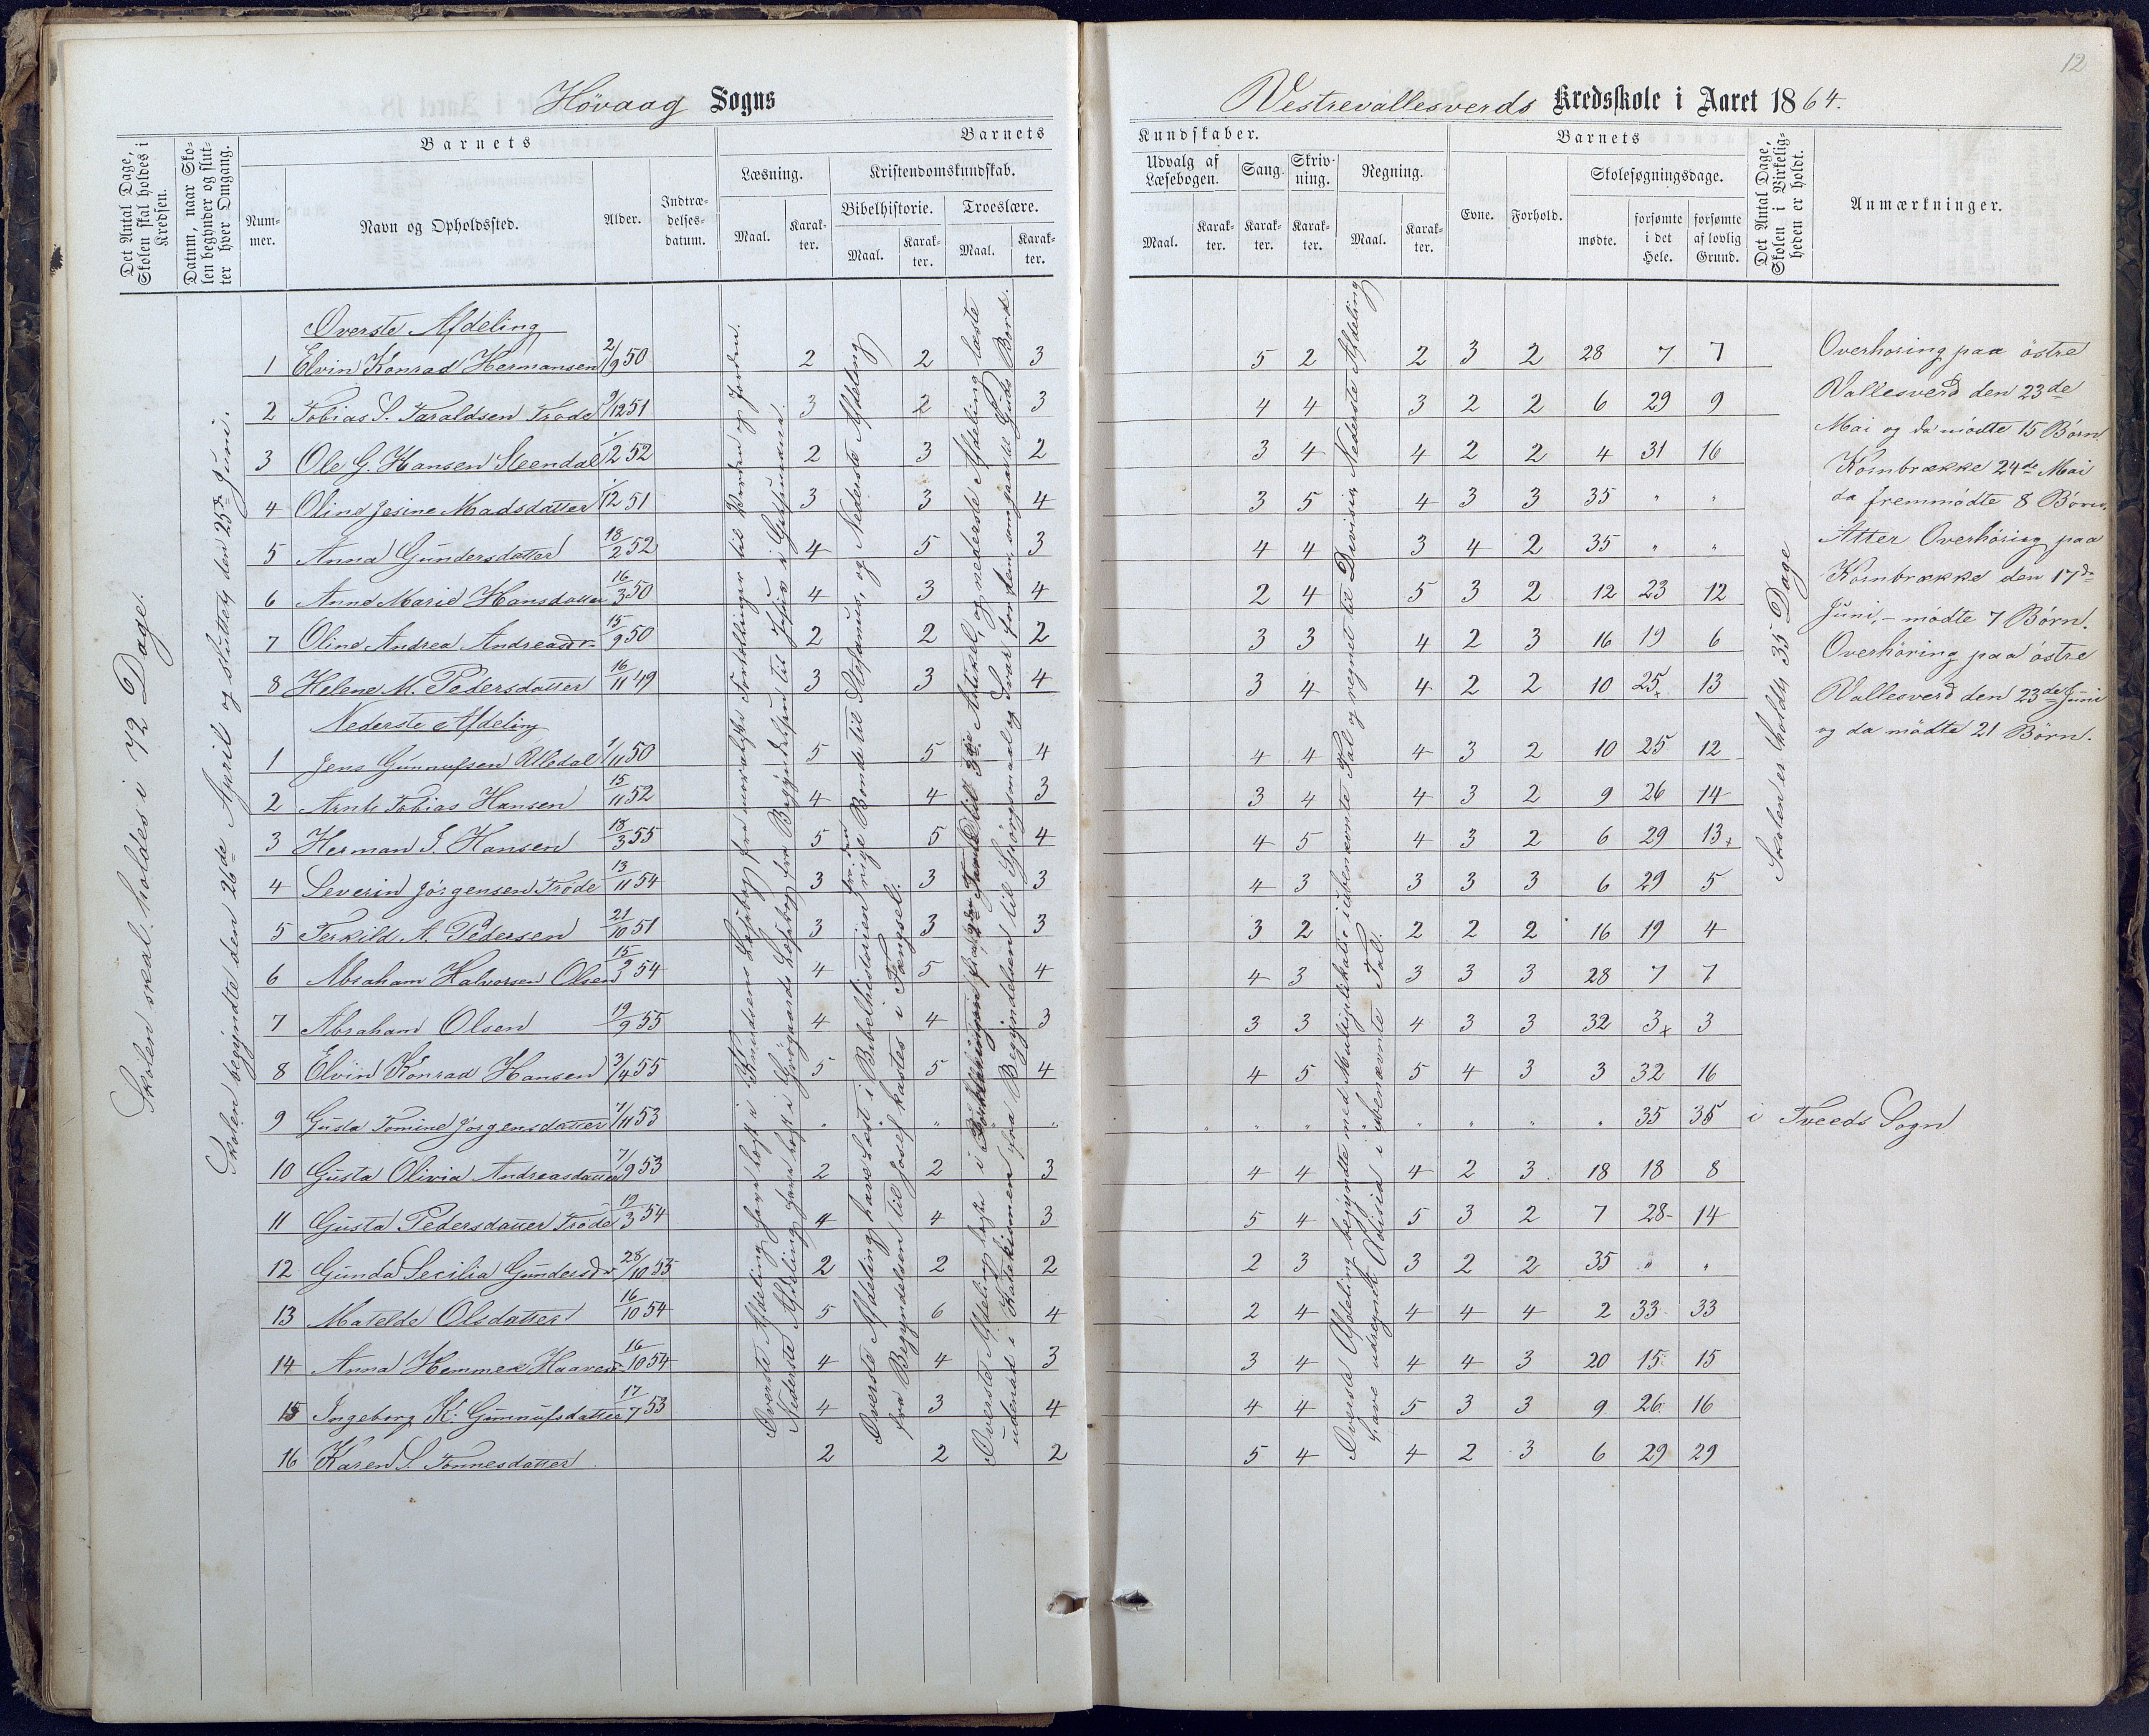 12
Hövaag Sogns
Vestrevallesverds Kredsskole i Aaret 1864.
Det Antal Dage, Skolen skal holdes i Kredsen.
Datum, naar Skolen begynder og slutter hver Omgang.
Barnets
Nummer.
Navn og Opholdssted.
Alder.
Indtrædelsesdatum.
Barnets
Læsning.
Maal.
Karakter.
Kristendomskundskab.
Bibelhistorie.
Maal.
Karakter.
Troeslære.
Maal.
Karakter.
Kundskaber.
Udvalg af Læsebogen.
Maal.
Karakter.
Sang.
Karakter.
Skrivning.
Karakter.
Regning.
Maal.
Karakter.
Barnets
Evne.
Forhold.
Skolesøgningsdage.
mødte.
forsømte i det Hele.
forsømte af lovlig Grund.
Det Antal Dage, Skolen i Virkeligheden er holdt.
Anmærkninger.
Skolen skal holdes i 72 Dage.
Skolen begyndte den 26de April og sluttet den 25de Juni.
Överste Afdeling
1 Elvin Konrad Hermansen 2/9 50 2 2 3 5 2 2 3 2 28 7 7
2 Tobias S. Taraldsen Trøde 9/12 51 3 2 3 4 4 3 2 2 6 29 9
3 Ole G. Hansen Steendal 1/2 52 2 3 2 3 4 4 2 2 4 31 16
4 Oline Jesine Madsdatter 1/12 51 3 3 4 3 5 4 3 3 35 " "
5 Anna Gundersdatter 18/2 52 4 5 3 4 4 3 4 2 35 " "
6 Anne Marie Hansdatter 16/3 50 4 3 4 2 4 5 3 2 12 23 12
7 Oline Andrea Andreasdr 15/9 50 2 2 2 3 3 4 2 3 16 19 6
8 Helene M. Pedersdatter 16/11 49 3 3 4 3 4 4 2 2 10 25x 13
Nederste Afdeling
1 Jens Gunnufsen Ulledal 1/11 50 5 5 4 4 4 4 3 2 10 25 12
2 Arnt Tobias Hansen 15/11 52 4 4 3 3 4 4 3 2 9 26 14
3 Herman S. Hansen 18/3 55 5 5 4 4 5 4 3 2 6 29 13x
4 Severin Jörgensen Tröde 13/11 54 3 3 3 4 3 3 3 3 6 29 5
5 Terkild A. Pedersen 21/10 51 3 3 3 3 2 2 2 2 16 19 4
6 Abraham Halvorsen Olsen 15/3 54 4 5 4 4 3 3 3 3 28 7 7
7 Abraham Olsen 19/9 55 4 4 3 3 3 4 3 3 32 3x 3
8 Elvin Konrad Hansen 3/4 55 5 5 4 4 5 5 4 3 3 32 16
9 Gusta Tomine Jörgensdatter 7/11 53 " " " " " " " " " 35 35 i Tveeds Sogn
10 Gusta Olivia Andreasdatter 7/9 53 2 2 3 4 4 4 2 3 18 18 8
11 Gusta Pedersdatter Tröde 19/3 54 4 4 3 5 4 5 3 2 7 28 14
12 Gunda Secilia Gundersdr 28/10 53 2 2 2 2 3 3 2 2 35 " "
13 Matelde Olsdatter 16/10 54 5 6 4 2 4 4 4 4 2 33 33
14 Anna Hemmek Haavers 16/10 54 4 4 3 3 4 4 4 3 20 15 15
15 Ingeborg K. Gunnufsdatter 17/7 53 4 3 4 4 4 5 3 3 9 26 16
16 Karen S. Tönnesdatter 2 2 2 5 4 4 2 3 6 29 29
Överste Afdeling have læst i Kredsens Læsebog fra moralske Fortellinger til Verden og Jorden.
Nederste Afdeling have læst i Læsebog fra Begyndelsen til
Överste Afdeling have læst i Bibelhistorien til Stefanus, og Nederste Afdeling
fra Begyndelsen til Josef kastes i Fængsel.
Överste Afdeling læst i Forklaringen til 3die Artikel, og nederste Afdeling læste
udenad i Katekismen fra Begyndelsen til Spörgsmaal og Svar
Överste Afdeling begyndte med Multiplikation i ubenævnte Tal og regnet til Division, Nederste Afdeling
have udregnet Addision i ubenævnte Tal.
Skolen er holdt 35 Dage
Overhøring paa östre
Vallesverd den 23de
Mai og da mödte 15 Børn
Kornbrække 24de Mai
da fremmödte 8 Børn.
Atter Overhöring paa
Kornbrække den 17de
Juni, – mödte 7 Børn.
Overhöring paa östre
Vallesverd den 23de Juni
og da mödte 21 Börn.